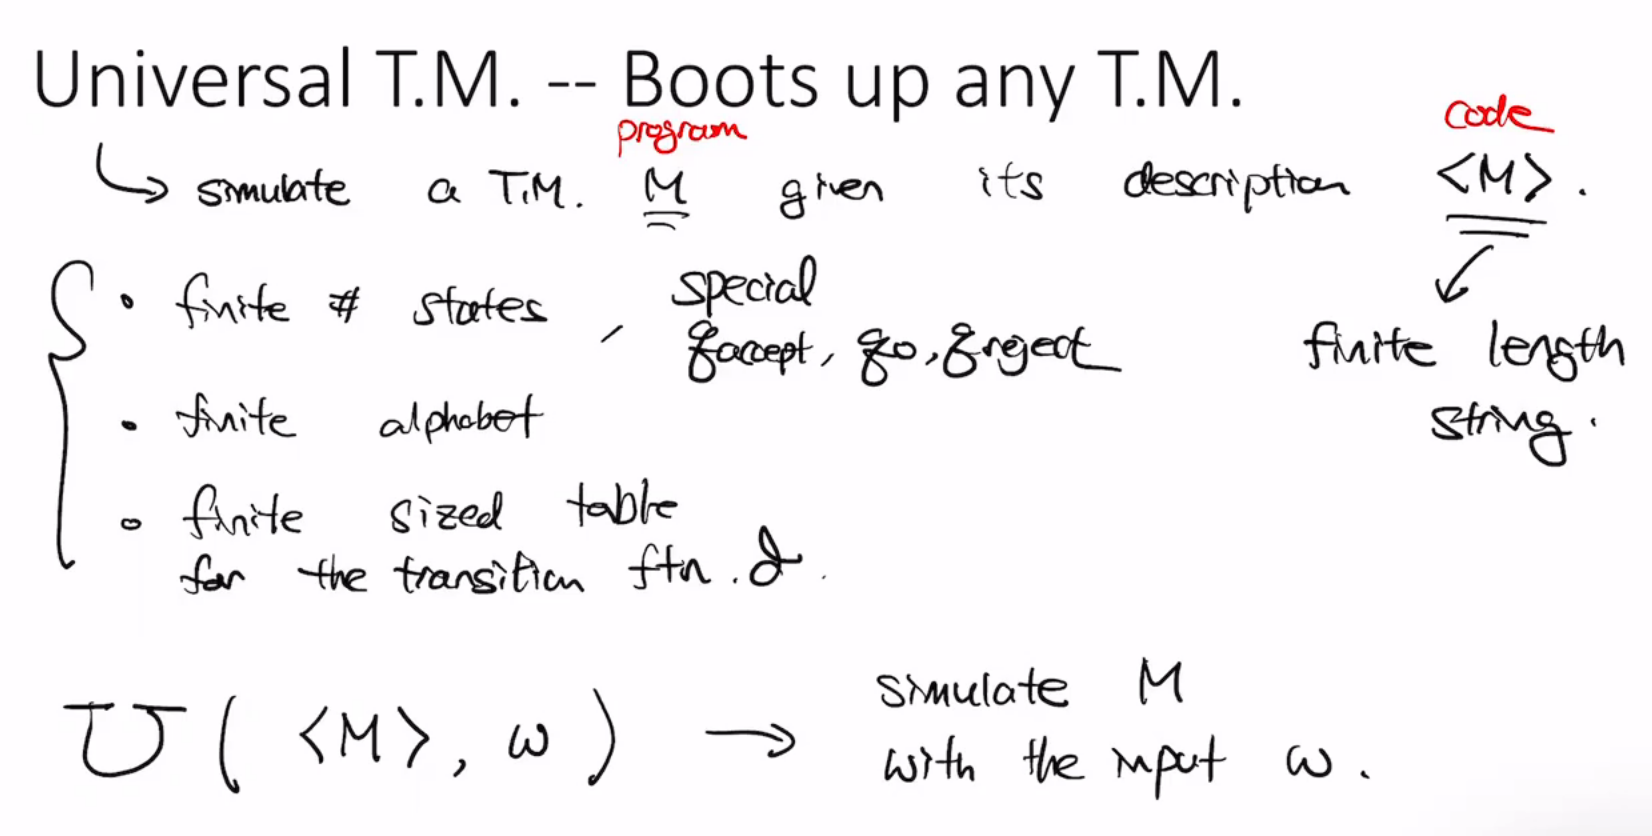 Universal T.M. -- Boots up any T.M.
program
code
↳ simulate a T.M. M given its description <M>.
• finite # states, special
q accept, q0, q reject
finite length
string.
• finite alphabet
• finite sized table
for the transition ftn. δ.
U ( <M>, w ) → simulate M
with the input w.